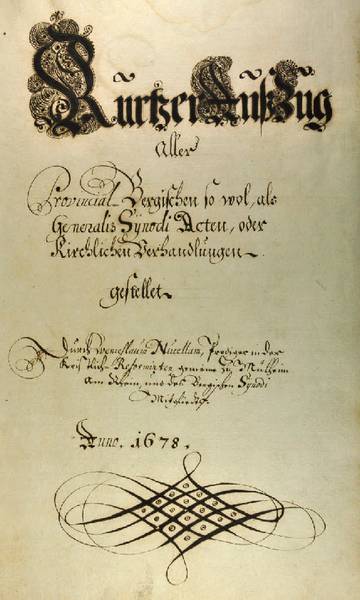 Kürtzer Außzug
Aller
Provincial Bergischen so wol, als
Generalis Synodi Acten, oder
Kirchlichen Verhandlungen
gestellet
Durch Wenneslaum Nucellam, Prediger in der
Reformirten gemeine zu Mülheim
Am Rhein, und des Bergischen Synodi
Mitgliedt.
Anno. 1678.